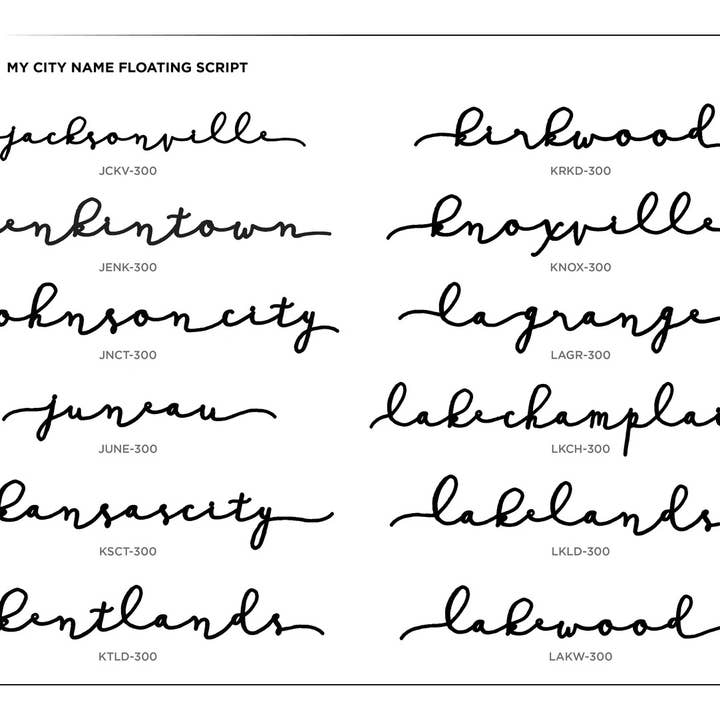 MY CITY NAME FLOATING SCRIPT
jacksonville
JCKV-300
enkintown
JENK-300
ohnson city
JNCT-300
juneau
JUNE-300
kansascity
KSCT-300
kentlands
KTLD-300
kirkwood
KRKD-300
knoxville
KNOX-300
lagrange
LAGR-300
lakechamplai
LKCH-300
lakelands
LKLD-300
lakewood
LAKW-300